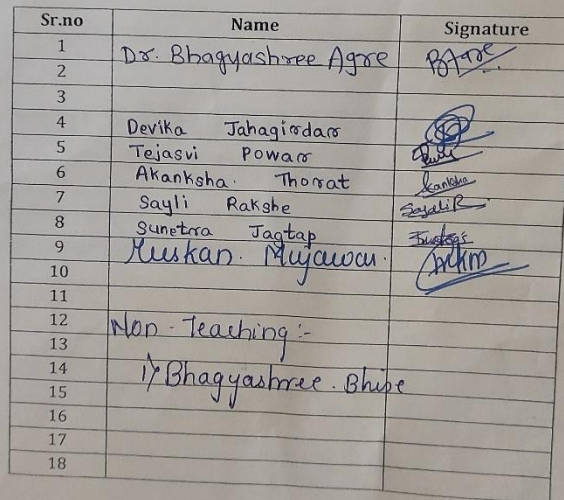 Sr.no Name Signature
1 Dr. Bhagyashree Agre
2
3
4 Devika Jahagirdar
5 Tejasvi Powar
6 Akanksha. Thorat
7 Sayli Rakshe SayaliR
8 Sunetra Jagtap
9 Muskan. Mujawar.
10
11
12 Non-Teaching:-
13
14 1) Bhagyashree. Bhise
15
16
17
18